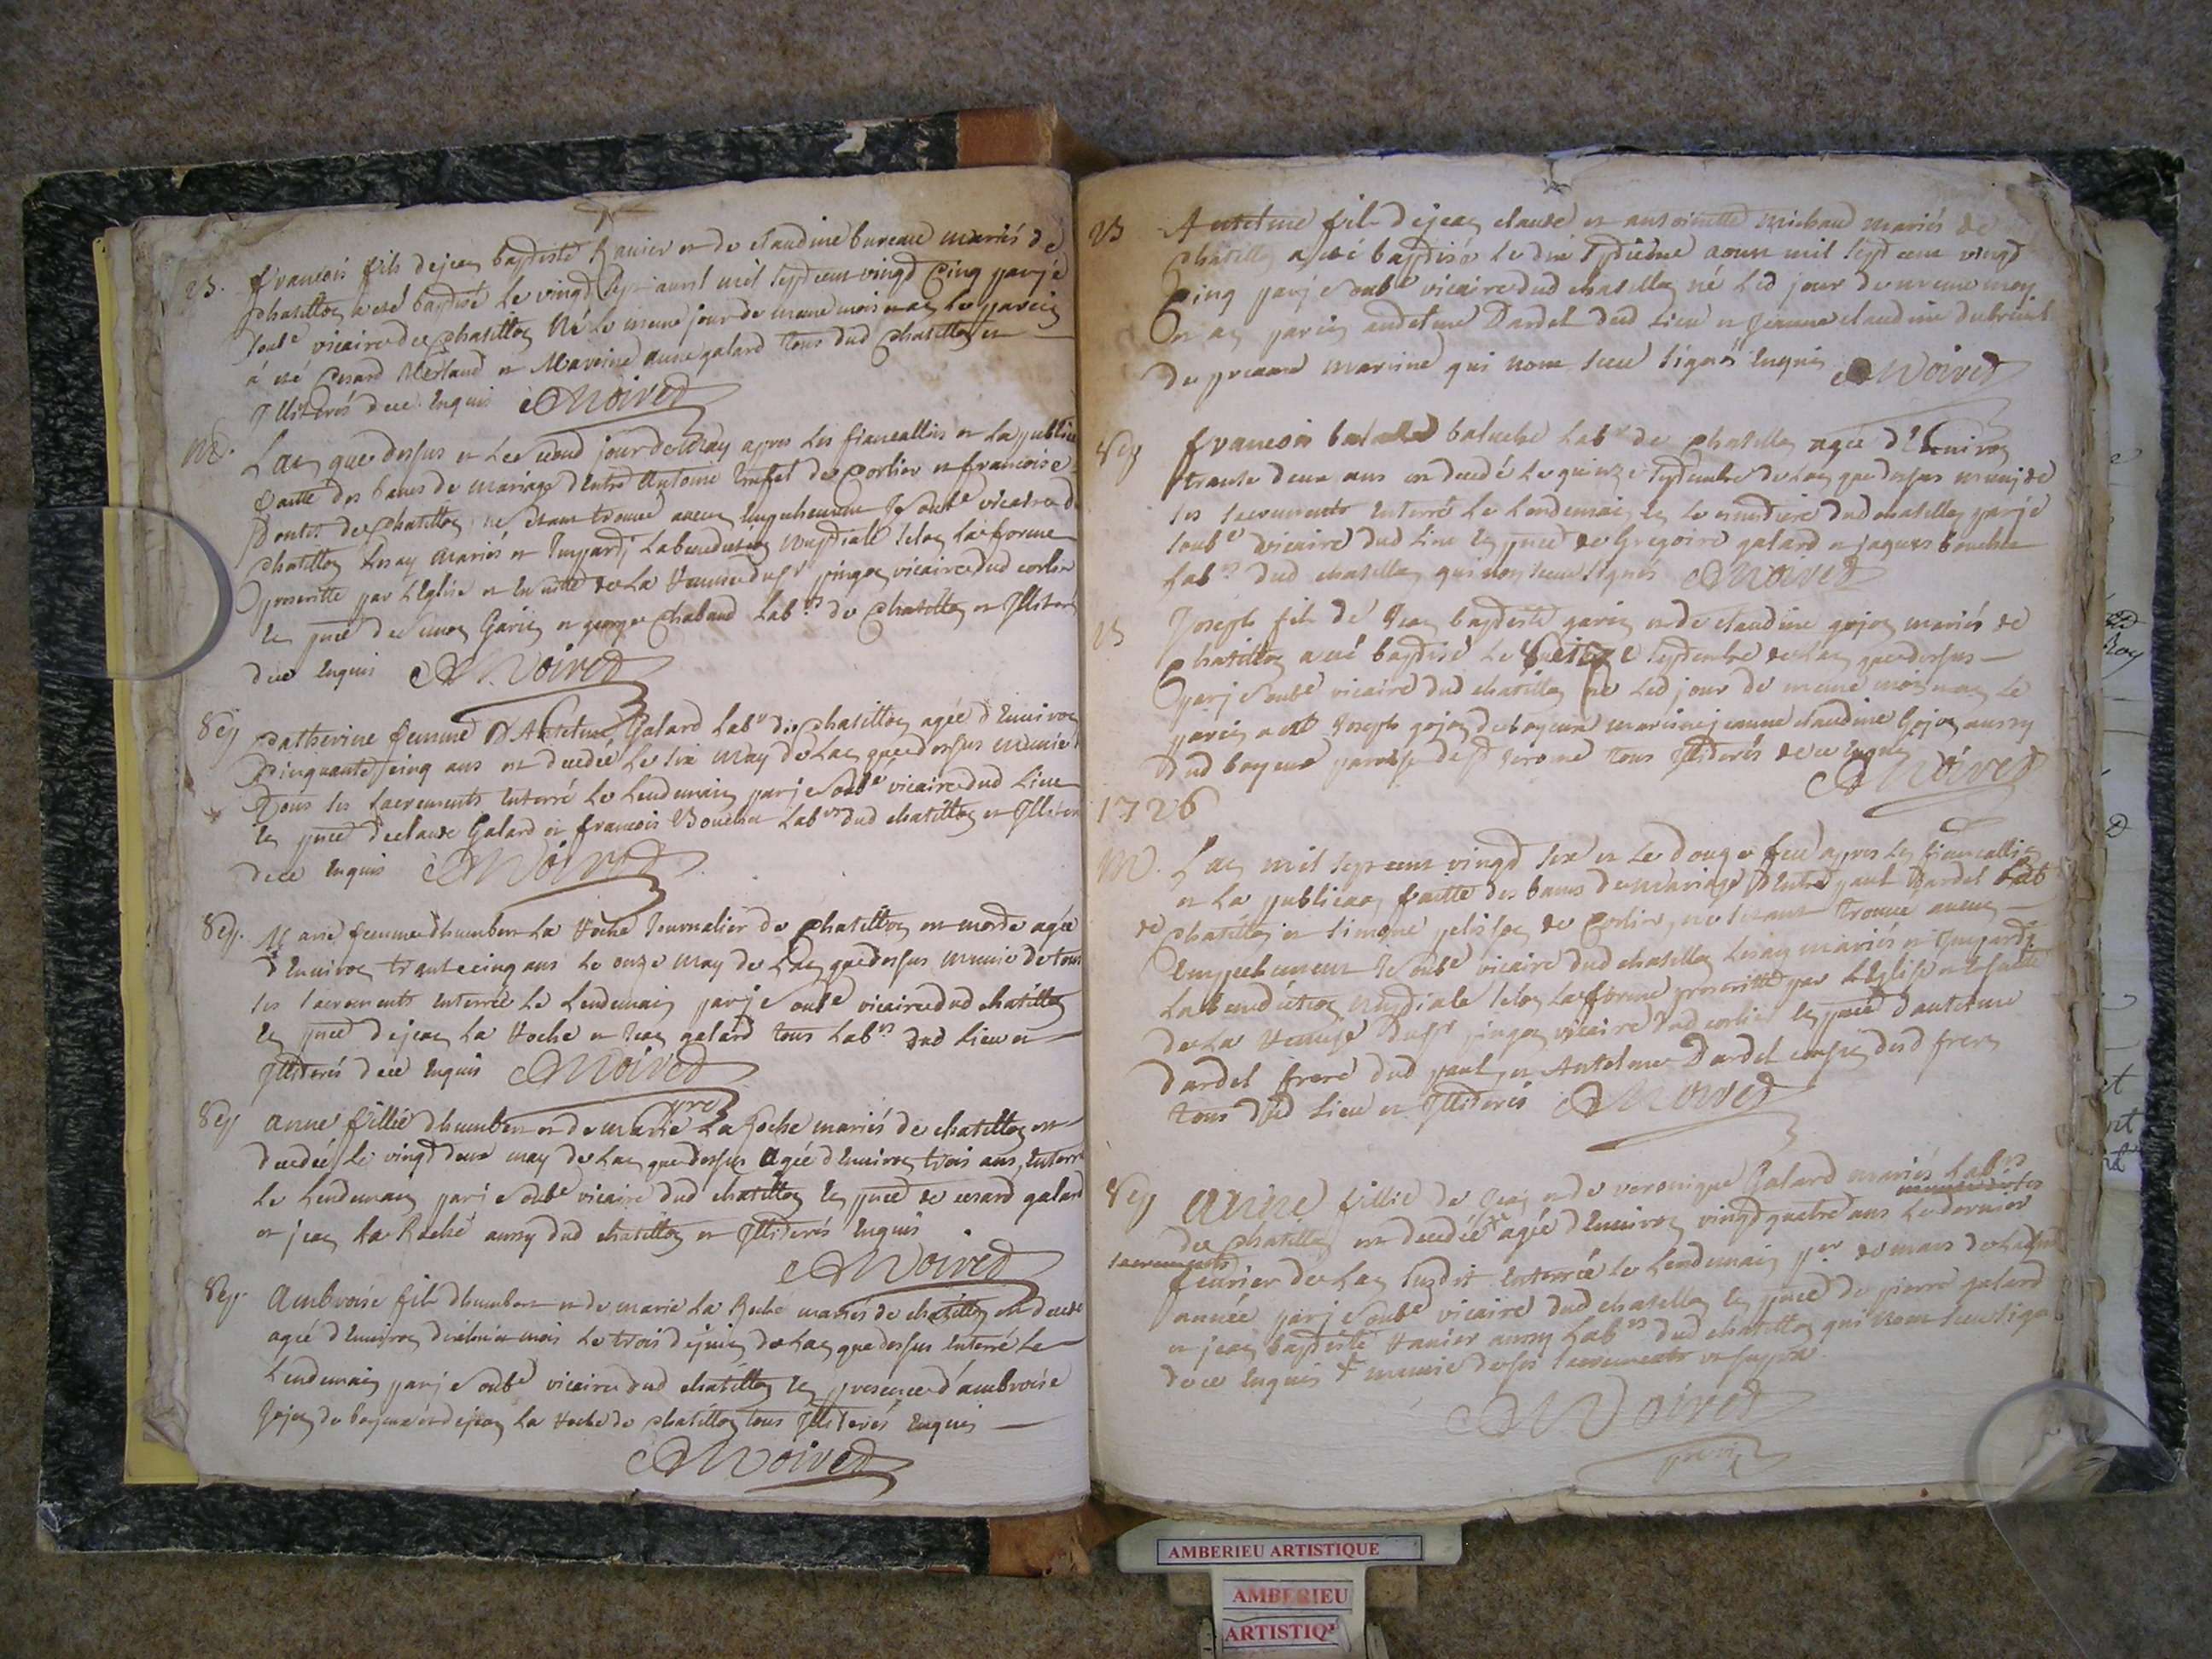 B. francois fils dejean baptiste Ranier et de claudine bureau mariés de
chatillon a eté baptisé le vingd sept avril mil sept cent vingd Cinq par je
soubé vicaire de chatillon Né le meme jour du meme mois et an le parrin
à eté Cesard Merlaud et Mareine anne galard tous dud Chatillon et
Illiterés de ce enquis Moiret
M. Lan que dessus et le second jour de May apres les fiancallies et la publica
faitte des bancs de mariage d'Entre Antoine de Corlier et francoise
de Chatillon ne setant trouvé aucun Empechement Je soubé vicaire de
chatillon Lesay mariés et Imparti La benediction nuptiale selon la forme
prescritte par L'Eglise et En suitte de La Remise du sr pingon vicaire dud corlie
En pnce de Garin et george Chabaud Labrs de Chatillon et Illiteré
de ce enquis Moiret
Sep Catherine femme D'Antelme Galard Labr de Chatillon agée d'Environ
Cinquante cinq ans est decedée Le six May de Lan que dessus munie
Tous ses sacrements Enterré Le Lendemain par je soubé vicaire dud Lieu
En pnce de claude Galard et francois Bouchu Labrs dud chatillon et Illiteré
de ce Enquis Moiret
Sep. Marie femme dhumbert La Roche Journalier de Chatillon est morte agée
d'Environ trante cinq ans Le onze May de Lan que dessus munie de tous
ses sacrements enterrée Le Lendemain par je soubé vicaire dud chatillon
En pnce de jean La Roche et Jean galard tous Labrs dud Lieu et
Illiterés de ce Enquis Moiret
Sep anne fillie dhumbert et de marie La Roche mariés de chatillon est
decedée Le vingd deux may de Lan que dessus agée d'Environ trois ans Enterré
Le Lendemain par je soubé vicaire dud chatillon En pnce de cesard galard
et jean La Roche aussy dud chatillon et Illiterés Enquis
Moiret
Sep. Ambroise fils dhumbert et de marie La Roche mariés de chatillon est decedé
agé d'Environ mois Le trois de juin de Lan que dessus Enterré Le
Lendemain par je soubé vicaire dud chatillon En presence d'ambroise
Gojon de boyeux et de jean La Roche de chatillon tous Illiterés Enquis
Moiret
B Antelme fils de jean claude et antoinette Michaud mariés de
Chatillon a eté baptisé Le dix aoust mil sept cent vingd
Cinq par je soubé vicaire dud chatillon né Led jour du meme moy
Et an parin antelme Dardel dud Lieu et jeanne claudine dubreuil
de mareine qui nont sceu signés Enquis Moiret
Sep francois baluchet Labr de Chatillon agée d'Environ
trante deux ans est decedé Le quinze septembre de Lan que dessus muni de
ses sacrements Enterré Le Lendemain En Le cimetiere dud chatillon par je
soubé vicaire dud Lieu En pnce de Gregoire galard et jaques bouchu
Labrs dud chatillon qui nont sceu signés Moiret
B Joseph fils de Jean baptiste garin et de claudine gojon mariés de
Chatillon a eté baptisé Le septembre de Lan que dessus
par je soubé vicaire dud chatillon né Led jour du meme moy et an Le
parin a eté Joseph gojon de boyeux mareine jeanne claudine Gojon aussy
dud boyeux paroisse de St Jerome tous Illiterés de ce Enquis
Moiret
1726
M. L'an mil sept cent vingd six et Le douze fev apres Les fiancallies
et La publicaon faitte des bancs de mariage d'Entre paul Dardel Lab
de Chatillon et simone pelisson de Corlier, ne setant trouvé aucun
Empechement Je soubé vicaire dud chatillon Lesay mariés et Imparti
La benediction nuptiale selon La forme prescritte par L'Eglise et Ensuitte
de La Remise du sr pingon vicaire dud corlier En pnce d'antelme
dardel frere dud paul, et Antelme Dardel cousin dud frere
tous dud Lieu et Illiterés Moiret
Sep anne fillie de Jean et de veronique Galard mariés Labrs
de Chatillon est decedée agée d'Environ vingd quatre ans Le dernier
sacrements
fevrier de Lan susdit Enterrée Le Lendemain per de mars de La susd
année par je soubé vicaire dud chatillon En pnce de pierre galard
et jean baptiste Ranier aussy Labrs dud chatillon qui nont sceu signe
de ce Enquis munie de ses sacrements ut supra
Moiret
AMBERIEU ARTISTIQUE
AMBERIEU
ARTISTIQ